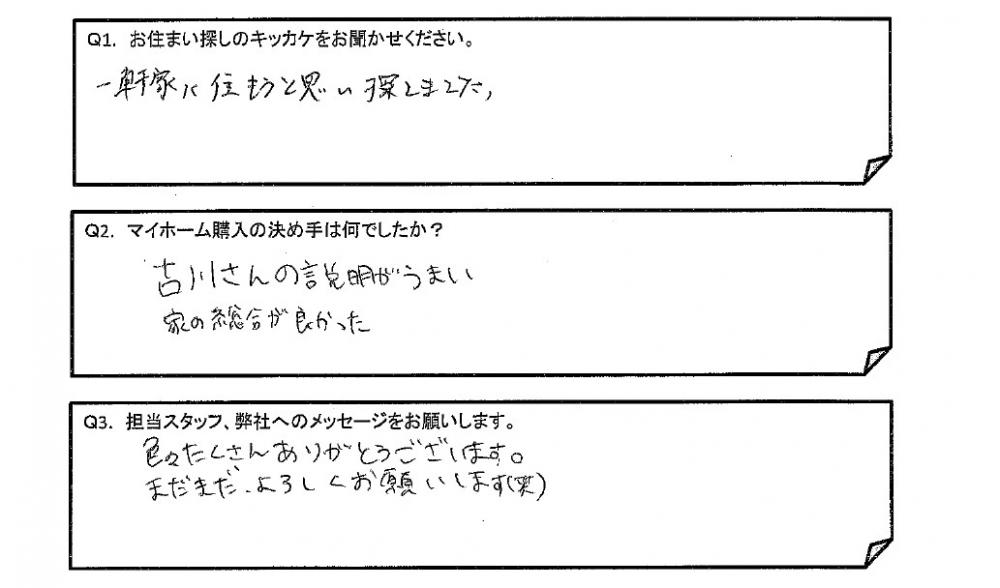 Q1. お住まい探しのキッカケをお聞かせください。
一軒家に住もうと思い探しました,
Q2. マイホーム購入の決め手は何でしたか？
古川さんの説明がうまい
家の総合が良かった
Q3. 担当スタッフ、弊社へのメッセージをお願いします。
色々たくさんありがとうございます。
まだまだ、よろしくお願いします(笑)